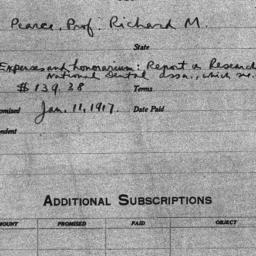 Pearce, Prof. Richard M.
State
Expenses and honorarium: Report on Research
National Dental Assn., which see.
$139.28
Terms
Jan. 11, 1917.
Date Paid
ADDITIONAL SUBSCRIPTIONS
PROMISED PAID OBJECT